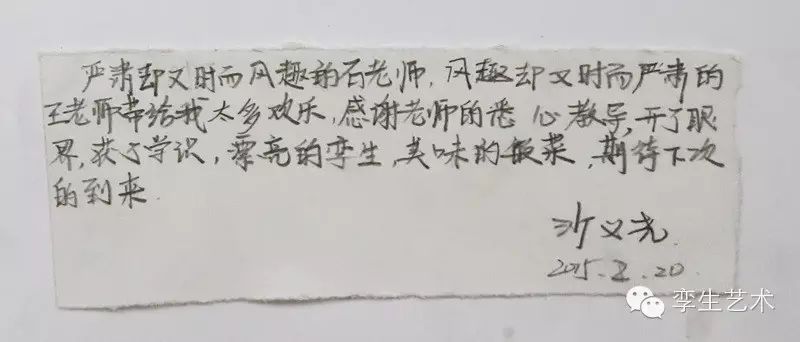 严肃却又时而风趣的石老师,风趣却又时而严肃的
王老师带给我太多欢乐,感谢老师的悉心教导,开了眼
界,获了学识,漂亮的孪生,美味的饭菜,期待下次
的到来.
沙义尧.
2015.2.20
孪生艺术